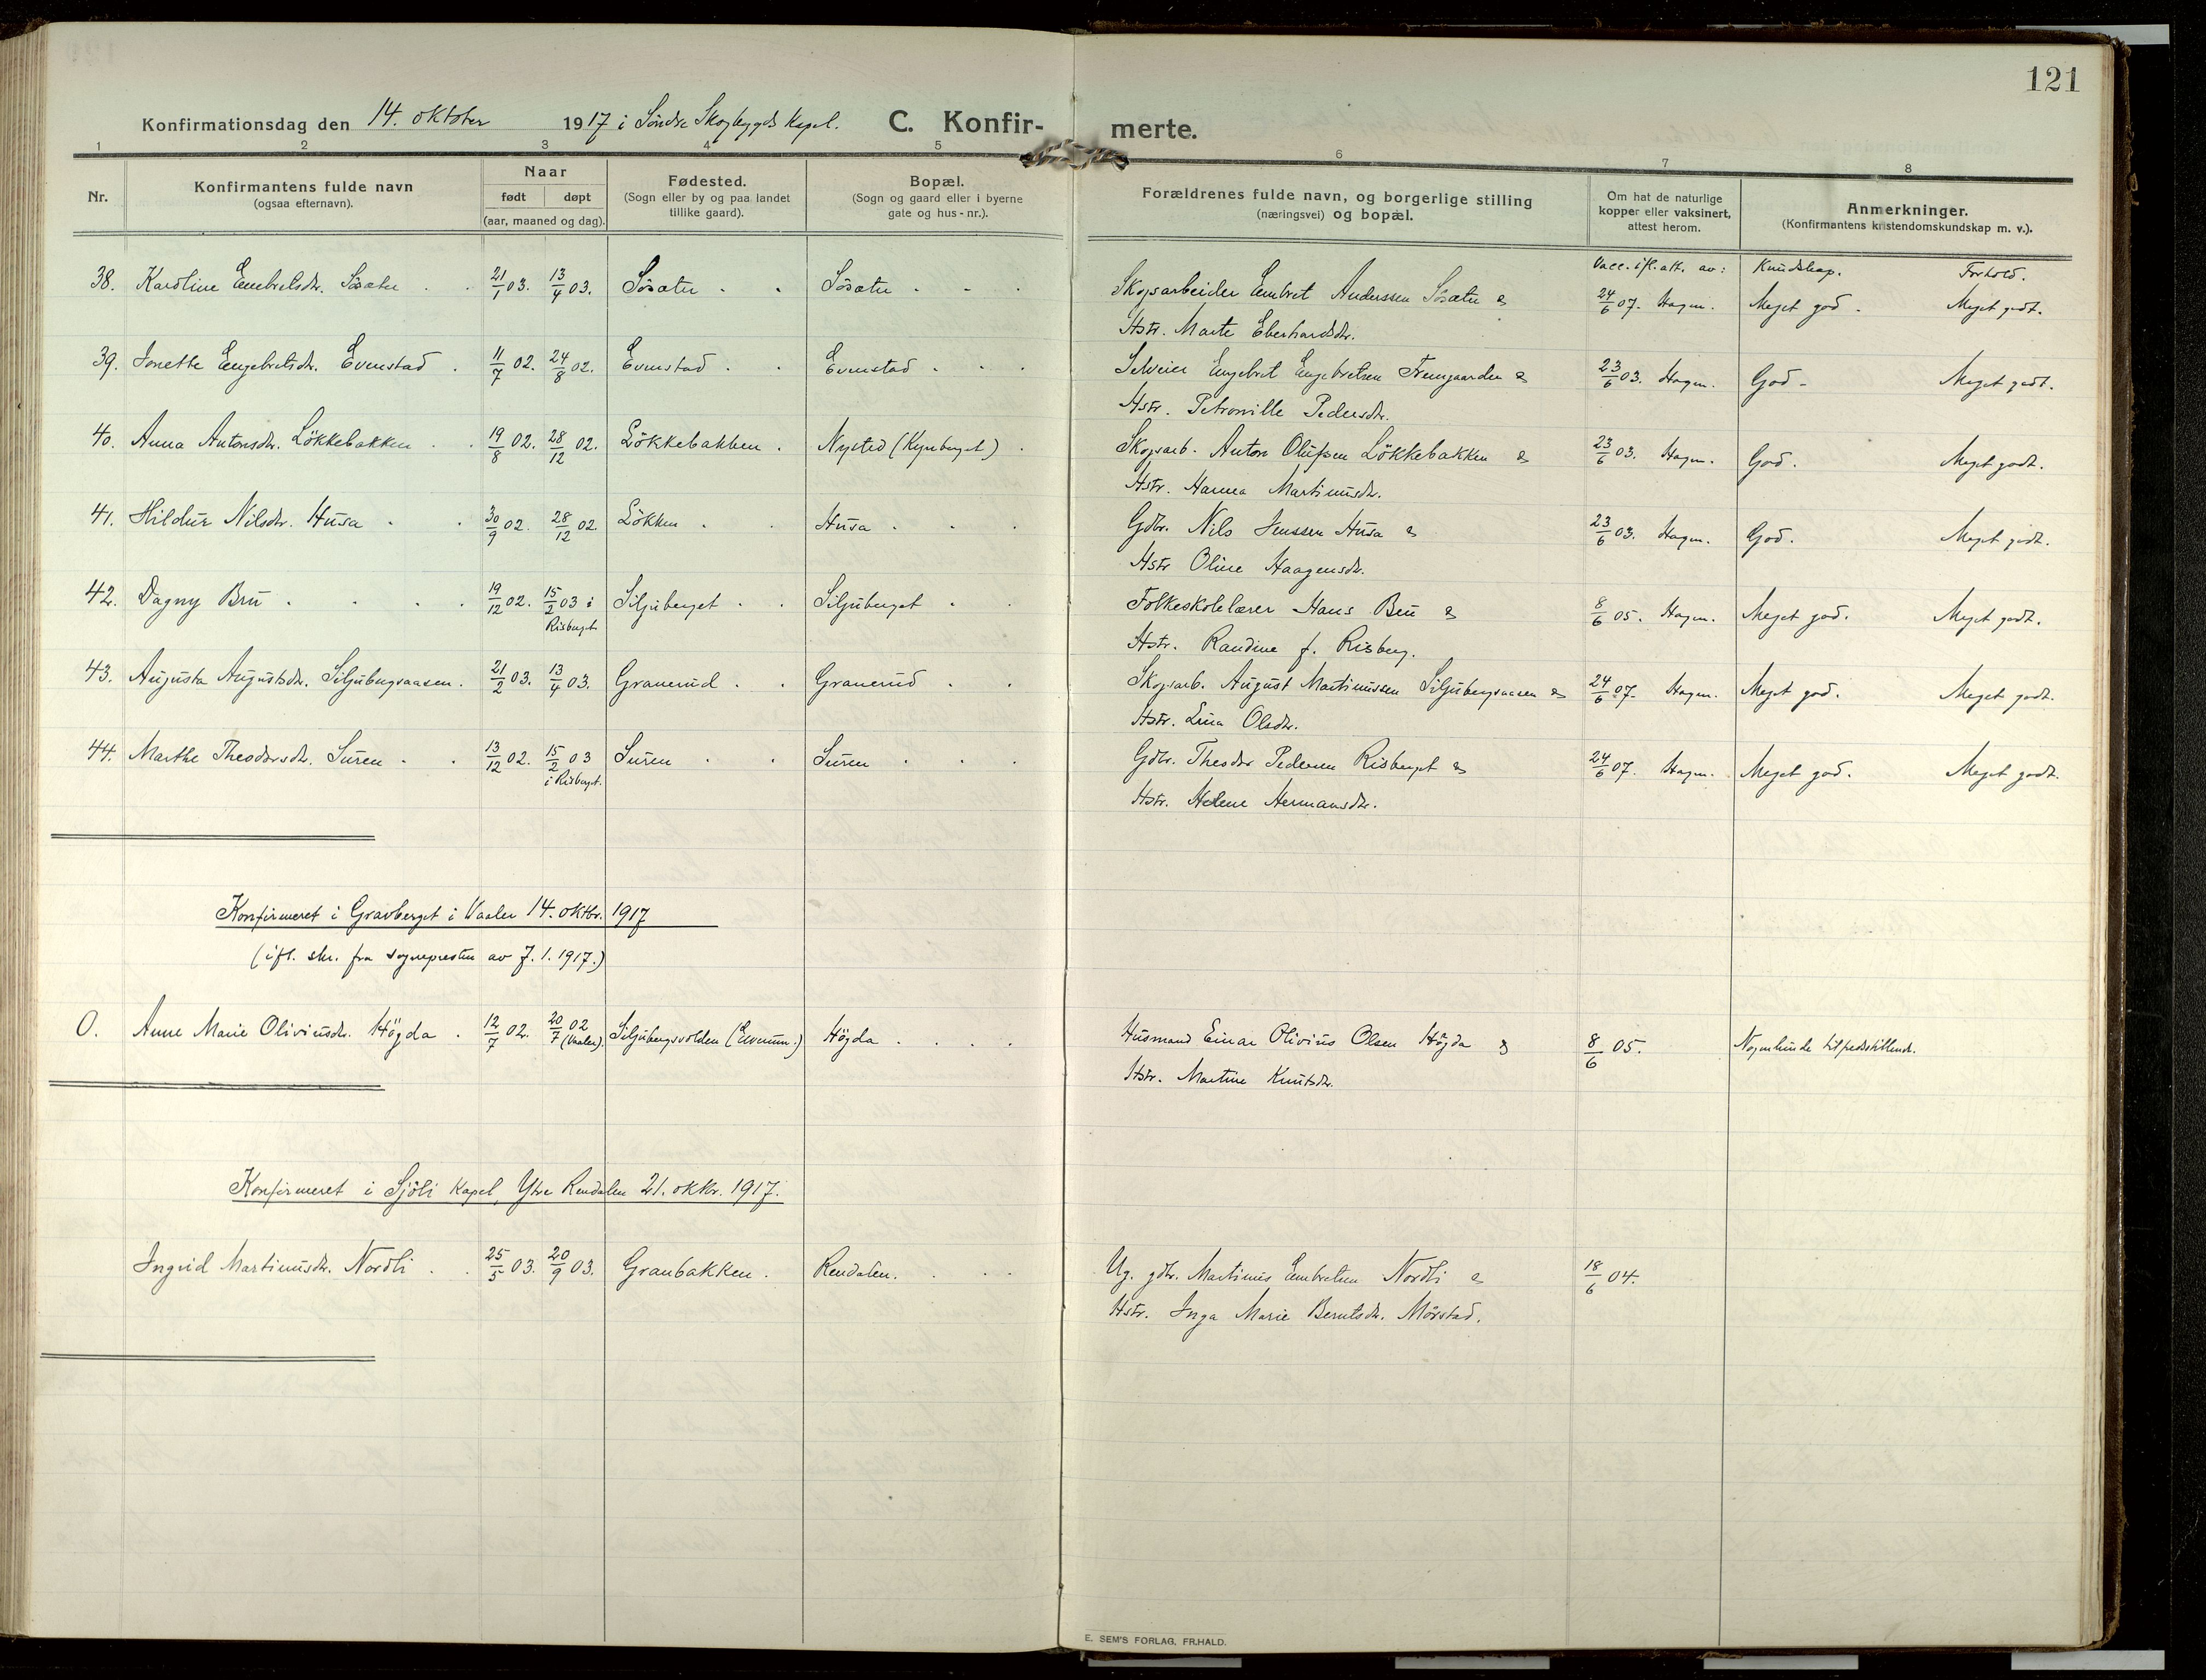 121
Konfirmationsdag den 14. oktober 1917 i Söndre Skogbygds Kapel. C. Konfir- merte.
1 2 3 4 5 6 7 8
Nr.
Konfirmantens fulde navn
(ogsaa efternavn).
Naar
født døpt
(aar, maaned og dag).
Fødested.
(Sogn eller by og paa landet
tillike gaard).
Bopæl.
(Sogn og gaard eller i byerne
gate og hus-nr.).
Forældrenes fulde navn, og borgerlige stilling
(næringsvei) og bopæl.
Om hat de naturlige
kopper eller vaksinert,
attest herom.
Anmerkninger.
(Konfirmantens kristendomskundskap m. v.).
Vacc. ifl. att. av: Kundskap. Forhold.
38. Karoline Embretsdr. Sösæter 21/1 03. 13/4 03. Sösæter Sösæter Skogsarbeider Embret Anderssen Sösæter & 24/6 07. Hagen. Meget god. Meget godt.
Hstr. Marte Eberhardsdr.
39. Jonette Engebretsdr. Evenstad 11/7 02. 24/8 02. Evenstad Evenstad Selveier Engebret Engebretsen Fremgaarden & 23/6 03. Hagen. God. Meget godt.
Hstr. Petronille Pedersdr.
40. Anna Antonsdr. Lökkebakken 19/8 02. 28/12 02. Lökkebakken Nysted (Kynberget) Skogsarb. Anton Olufsen Lökkebakken & 23/6 03. Hagen. God. Meget godt.
Hstr. Hanna Martinusdr.
41. Hildur Nilsdr. Husa 30/9 02. 28/12 02 Lökken Husa Gdbr. Nils Jenssen Husa & 23/6 03. Hagen. God. Meget godt.
Hstr Oline Haagensdr.
42. Dagny Bru 19/12 02. 15/2 03 i Siljuberget Siljuberget Folkeskolelærer Hans Bru & 8/6 05. Hagen. Meget god. Meget godt.
Risberget
Hstr. Randine f. Risberg.
43. Augusta Augustsdr. Siljubergsaasen. 21/2 03. 13/4 03. Granerud Granerud Skogsarb. August Martinussen Siljubergsaasen & 24/6 07. Hagen. Meget god. Meget godt.
Hstr. Lina Olsdr.
44. Marthe Theodorsdr. Suren 13/12 02. 15/2 03 Suren Suren Gdbr. Theodor Pedersen Risberget & 24/6 07. Hagen. Meget god. Meget godt.
i Risberget.
Hstr. Helene Hermansdr.
Konfirmeret i Gravberget i Vaaler 14. oktbr. 1917
(ifl. skr. fra sognepresten av 7. 1. 1917.)
0. Anne Marie Oliviusdr. Högda 12/7 02. 20/7 02 (Vaaler). Siljubergsvolden (Elverum.) Högda Husmand Einar Olivius Olsen Högda & 8/6 05. Nogenlunde tilfredsstillende.
Hstr. Martine Knutsdr.
Konfirmeret i Sjöli Kapel, Ytre Rendalen 21. oktbr. 1917.
Ingrid Martinusdr. Nordli 25/5 03. 20/9 03. Granbakken. Rendalen. Ug. gdbr. Martinus Embretsen Nordli & 18/6 04.
Hstr. Inga Marie Berntsdr. Mörstad.
E. SEM'S FORLAG, FR.HALD.